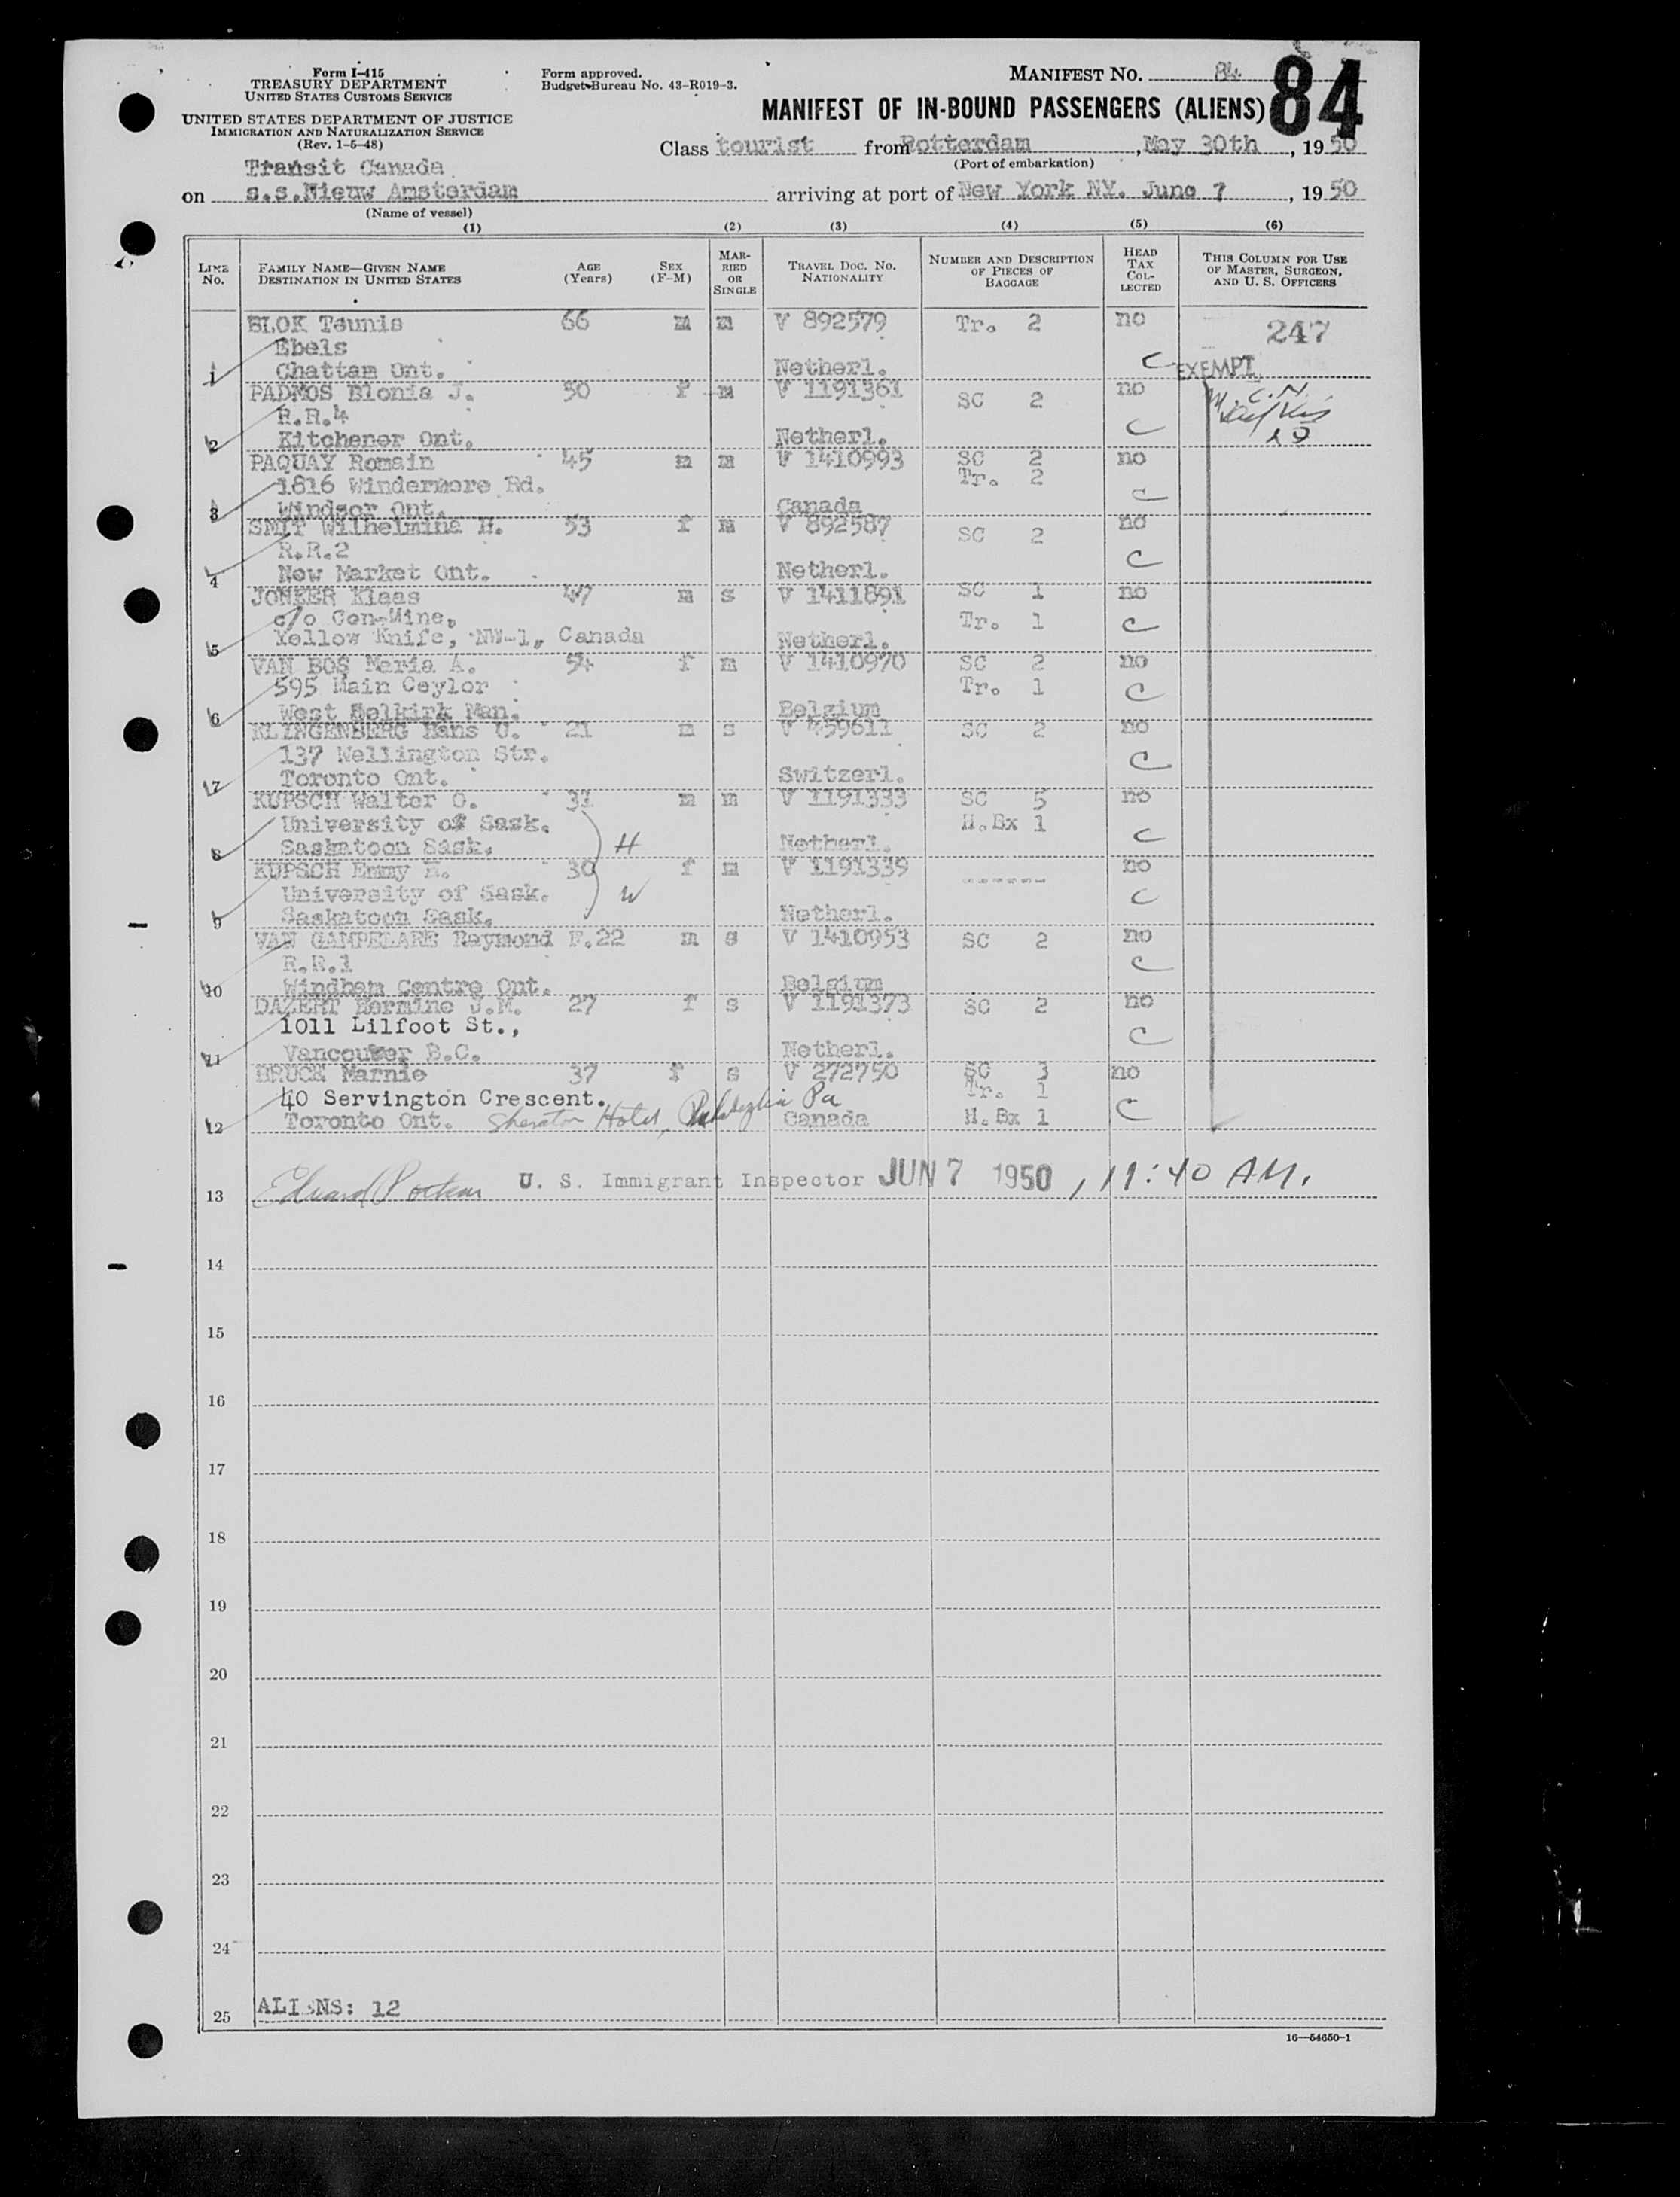 Form I-415
TREASURY DEPARTMENT
UNITED STATES CUSTOMS SERVICE
UNITED STATES DEPARTMENT OF JUSTICE
IMMIGRATION AND NATURALIZATION SERVICE
(Rev. 1-5-48)
Form approved.
Budget Bureau No. 43-R019-3.
MANIFEST NO. 84
84
MANIFEST OF IN-BOUND PASSENGERS (ALIENS)
Class tourist from Rotterdam, May 30th, 1950
(Port of embarkation)
Transit Canada
on s.s.Nieuw Amsterdam arriving at port of New York NY. June 7, 1950
(Name of vessel)
(1) (2) (3) (4) (5) (6)
LINE No. FAMILY NAME—GIVEN NAME DESTINATION IN UNITED STATES AGE (Years) SEX (F-M) MARRIED OR SINGLE TRAVEL DOC. NO. NATIONALITY NUMBER AND DESCRIPTION OF PIECES OF BAGGAGE HEAD TAX COLLECTED THIS COLUMN FOR USE OF MASTER, SURGEON, AND U. S. OFFICERS
BLOK Teunis 66 m m V 892579 Tr. 2 no 247
Ebels
1 Chattam Ont. Netherl. C EXEMPT
PADMOS Blonia J. 50 f m V 1191361 SC 2 no
R.R.4
2 Kitchener Ont. Netherl. C
PAQUAY Romain 45 m m V 1410993 SC 2 no
1816 Windermore Rd. Tr. 2
3 Windsor Ont. Canada C
SMIT Wilhelmina H. 53 f m V 892587 SC 2 no
R.R.2
4 New Market Ont. Netherl. C
JONKER Klaas 47 m s V 1411891 SC 1 no
c/o Con-Mine, Tr. 1
5 Yellow Knife, NW-1, Canada Netherl. C
VAN BOS Maria A. 54 f m V 1410970 SC 2 no
595 Main Ceylor Tr. 1
6 West Selkirk Man. Belgium C
KLINGENBERG Hans U. 21 m s V 459611 SC 2 no
137 Wellington Str.
7 Toronto Ont. Switzerl. C
KUPSCH Walter O. 31 m m V 1191333 SC 5 no
University of Sask. H.Bx 1
8 Saskatoon Sask. H Netherl. C
KUPSCH Emmy H. 30 f m V 1191339 ------ no
University of Sask. W
9 Saskatoon Sask. Netherl. C
VAN GAMPELARE Raymond F. 22 m s V 1410953 SC 2 no
R.R.1
10 Windham Centre Ont. Belgium C
DAZERT Hermine J.M. 27 f s V 1191373 SC 2 no
1011 Lilfoot St.,
11 Vancouver B.C. Netherl. C
BRUCE Marnie 37 f s V 272750 SC 3 no
40 Servington Crescent. Tr. 1
12 Toronto Ont. Sheraton Hotel, Philadelphia Pa Canada H.Bx 1 C
13 U. S. Immigrant Inspector JUN 7 1950, 11:40 AM.
14
15
16
17
18
19
20
21
22
23
24
25 ALIENS: 12
16—54650-1